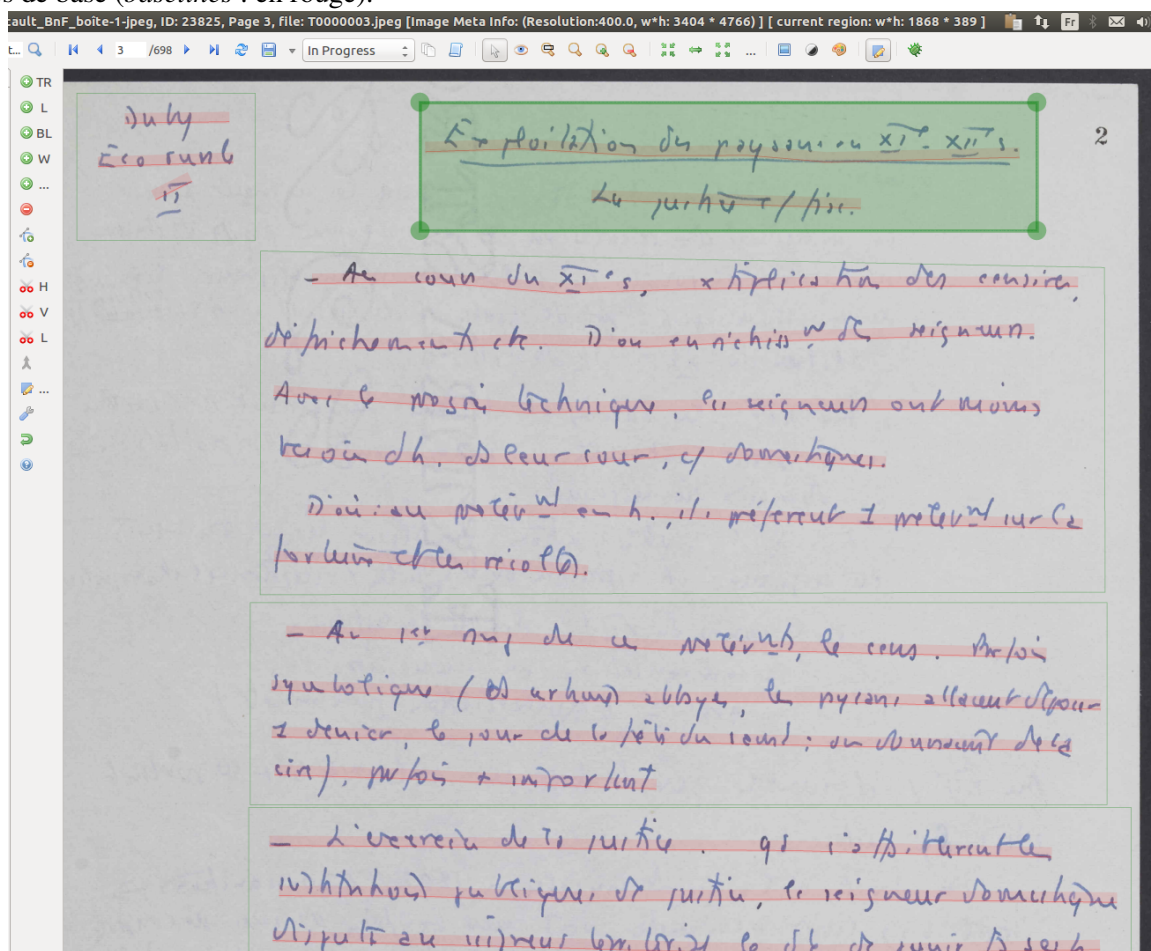 s de base (baselines : en rouge).
ault_BnF_boîte-1-jpeg, ID: 23825, Page 3, file: T0000003.jpeg [Image Meta Info: (Resolution:400.0, w*h: 3404 * 4766) ] [ current region: w*h: 1868 * 389 ] Fr
t... 3 /698 In Progress ...
TR
L
BL
W
...
H
V
L
...
Duby
Eco rurale
II
2
Exploitation du paysan au XIe - XIIe s.
La justice / fisc.
- Au cours du XIe s, × tiplication des censives,
défrichements etc. D'où enrichisst des seigneurs.
Avec le progrès technique, les seigneurs ont moins
besoin d'h. ds leur cour, c/ domestiques.
D'où : au prélèvt en h., ils préfèrent 1 prélèvt sur la
fortune et les récoltes.
- Au 1er rang de ce prélèvts, le cens. Parfois
symbolique ( abbaye, les paysans allaient déposer
1 denier, le jour de la fête du saint ; ou donnaient de la
cire), parfois + important
- L'exercice de la justice.
publiques de justice, le seigneur domestique